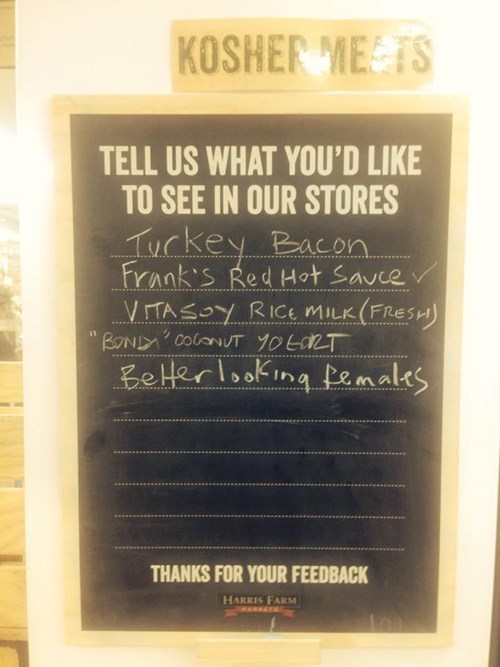 KOSHER MEATS
TELL US WHAT YOU'D LIKE
TO SEE IN OUR STORES
Turkey Bacon
Frank's Red Hot Sauce ✓
VITASOY RICE MILK (FRESH)
"BONDI" COCONUT YOGURT
Better looking females
THANKS FOR YOUR FEEDBACK
HARRIS FARM
MARKETS